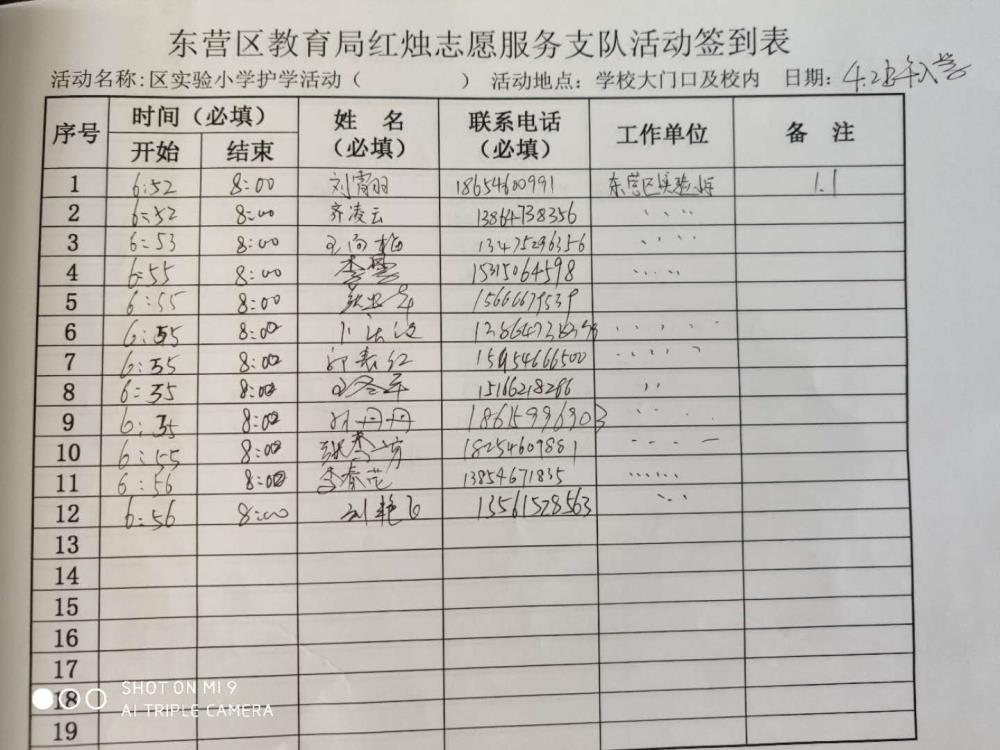 东营区教育局红烛志愿服务支队活动签到表
活动名称:区实验小学护学活动（ ） 活动地点：学校大门口及校内 日期：
序号 时间（必填） 姓 名（必填） 联系电话（必填） 工作单位 备 注
开始 结束
1 6:52 8:00 刘霄羽 18654600991 东营区实验 1.1
2 6:52 8:00 齐凌云 13864738356 〃
3 6:53 8:00 13475296356 〃
4 6:55 8:00 15315064598 〃
5 6:55 8:00 15666679539
6 6:55 8:00 〃
7 6:55 8:00 15954666500 〃
8 6:55 8:00 15166218286 〃
9 6:55 8:00 孙丹丹 18615996903 〃
10 6:55 8:00 18254609881 〃
11 6:56 8:00 李春范 13854671835 〃
12 6:56 8:00 刘艳飞 13561528563 〃
13
14
15
16
17
18
19
SHOT ON MI 9
AI TRIPLE CAMERA